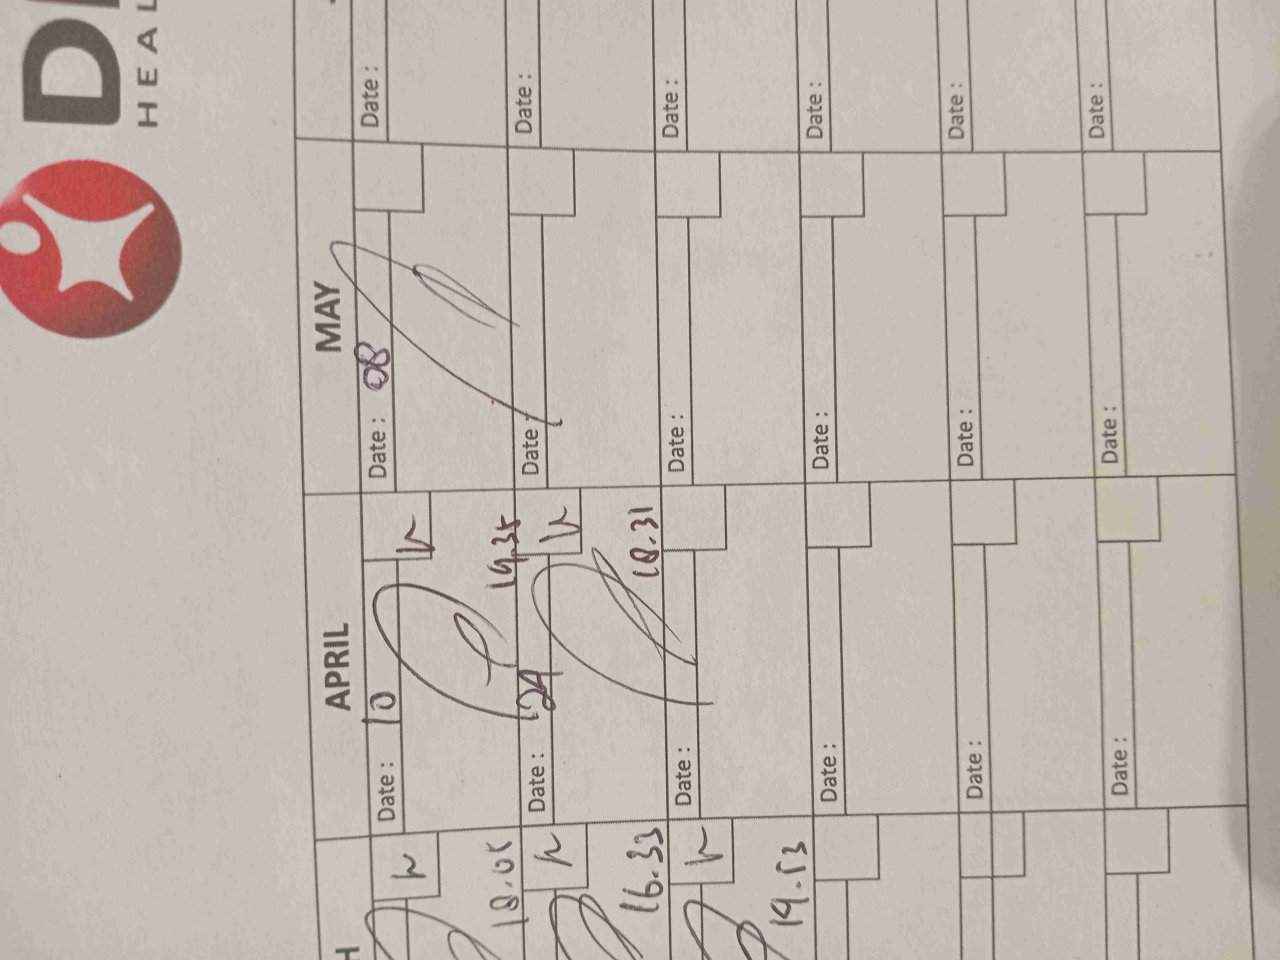 D
HEAL
H
APRIL
MAY
Date : 10
Date : 08
Date :
18.05
19.35
Date : 24
Date :
Date :
16.33
18.31
Date :
Date :
Date :
19.53
Date :
Date :
Date :
Date :
Date :
Date :
Date :
Date :
Date :